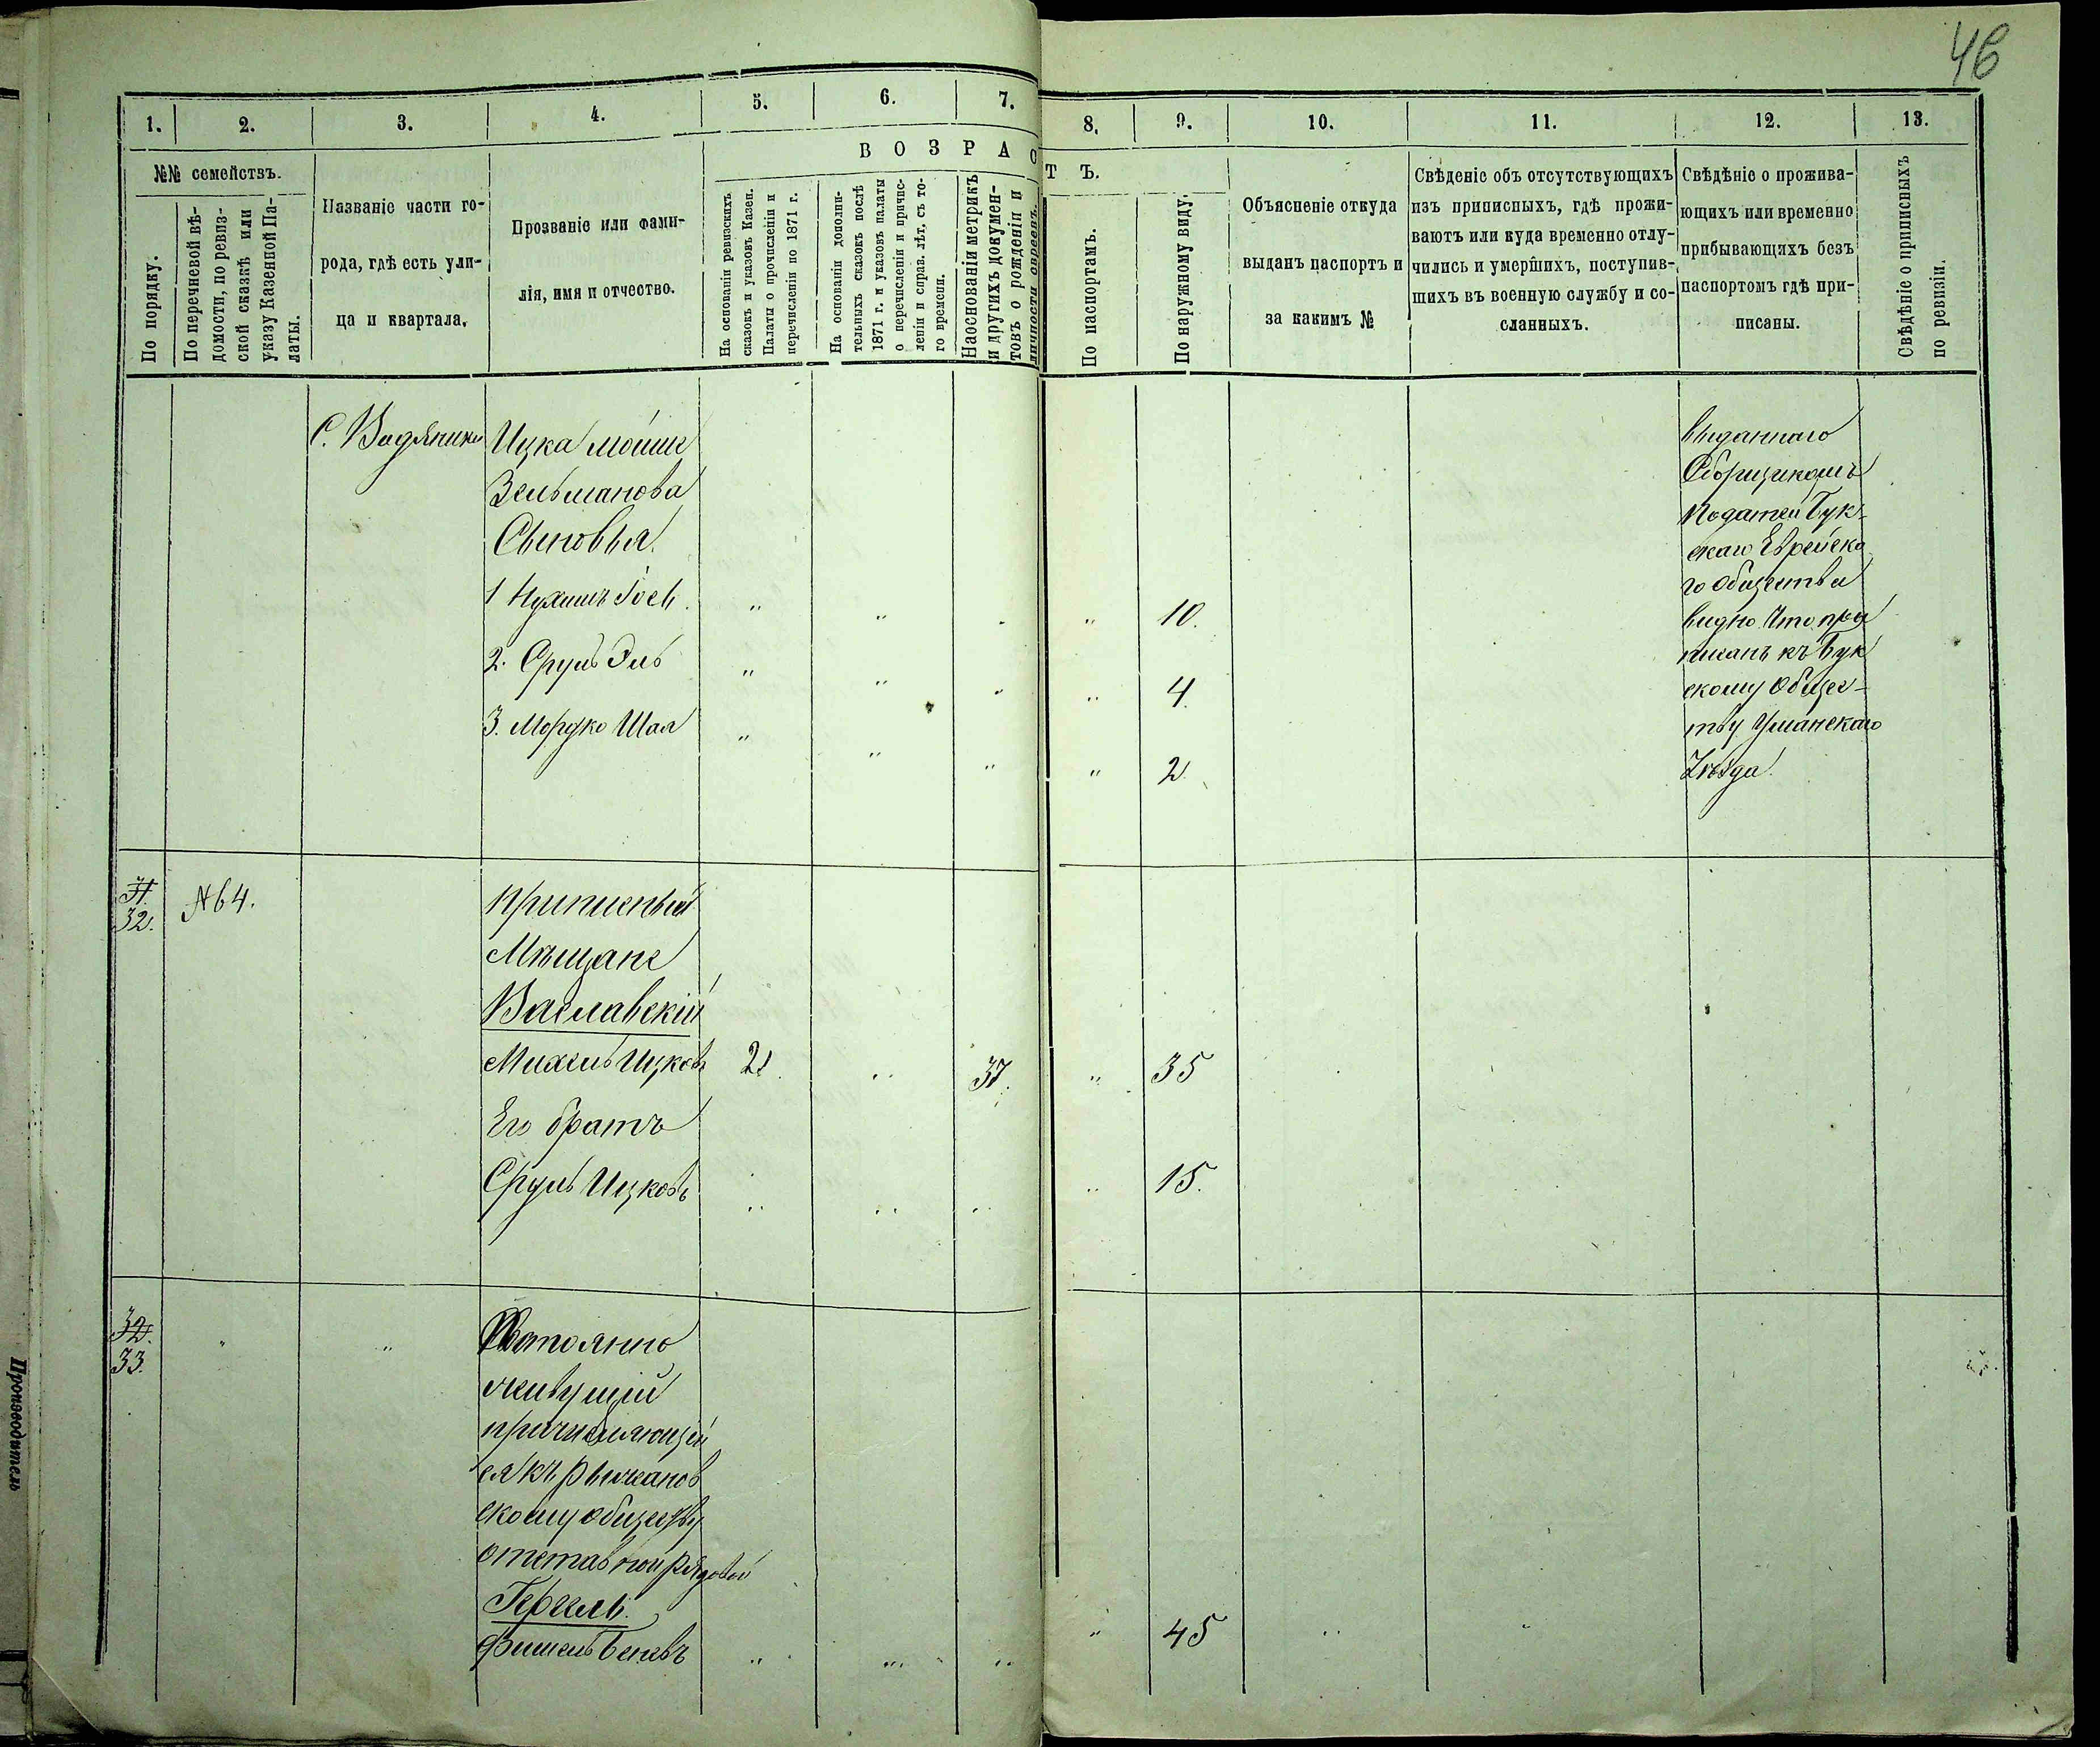 46
1.
2.
3.
4.
5.
6.
7.
8.
9.
10.
11.
12.
13.
№№ семействъ.
По порядку.
По перечневой вѣ-
домости, по ревиз-
ской сказкѣ или
указу Казенной Па-
латы.
Названіе части го-
рода, гдѣ есть ули-
ца и квартала.
Прозваніе или фами-
лія, имя и отчество.
ВОЗРАСТЪ.
На основаніи ревизскихъ
сказокъ и указовъ Казен.
Палаты о прочисленіи и
перечисленіи по 1871 г.
На основаніи дополни-
тельныхъ сказокъ послѣ
1871 г. и указовъ палаты
о перечисленіи и причис-
леніи и справ. лѣт, съ то-
го времени.
Наоснованіи метрикъ
и другихъ докумен-
товъ о рожденіи и
личности опредѣ.
По паспортамъ.
По наружному виду.
Объясненіе откуда
выданъ паспортъ и
за какимъ №
Свѣденіе объ отсутствующихъ
изъ приписныхъ, гдѣ прожи-
ваютъ или куда временно отлу-
чились и умершихъ, поступив-
шихъ въ военную службу и со-
сланныхъ.
Свѣдѣніе о прожива-
ющихъ или временно
прибывающихъ безъ
паспортомъ гдѣ при-
писаны.
Свѣдѣніе о приписныхъ
по ревизіи.
С. Водяники
Ицка Мойше
Зельманова
Сыновья.
1 Нухимъ Іось. " " " " 10.
2. Сруль Эль " " " " 4.
3. Мордко Шая " " " " 2
выданнаго
Сборщикомъ
Податей Бук-
скаго Еврейска
го общества
видно что при
писанъ къ Бук
скому общес-
тву Уманскаго
Уѣзда.
31.
32. №64.
Приписный
Мѣщане
Ваславскій
Михель Ицковъ 21. " 37. " 35
Его братъ
Сруль Ицковъ " " " " 15.
32.
33. " "
Постоянно
живущій
причисляющій
ся къ Рыжанов
скому обществу
отставной рядовой
Гершель
Фишель Беневъ " " " " 45 " "
Производитель